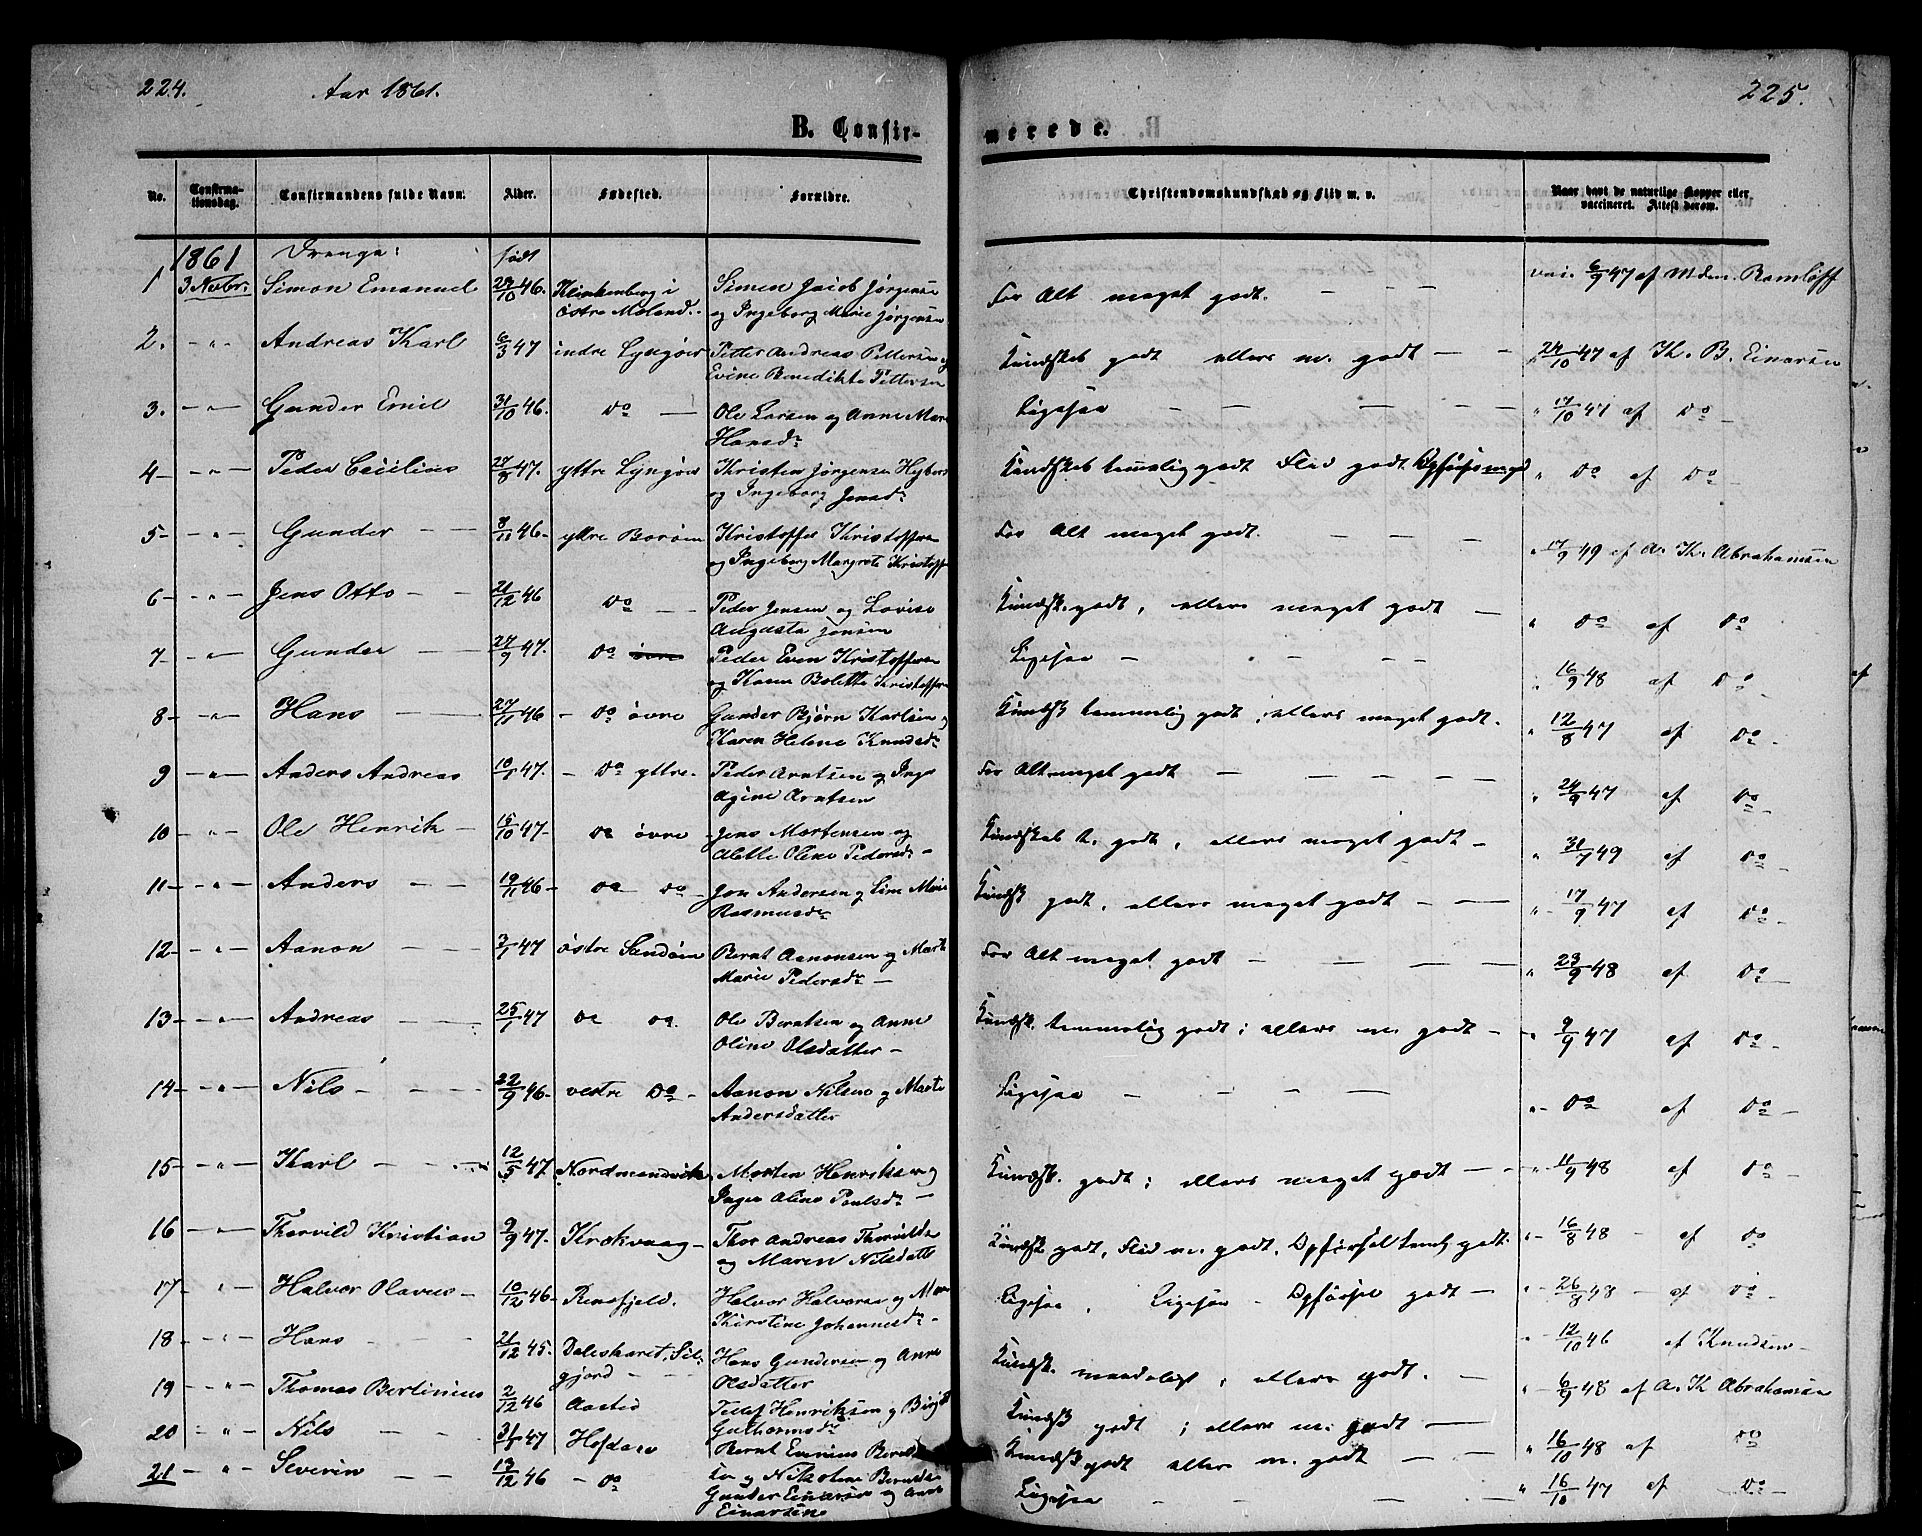 224.
Aar 1861.
B. Confir-
No.
Confirma-
tionsdag.
Confirmandens fulde Navn.
Alder.
Fødested.
Forældre.
1861 Drenge: født
1 3 Novbr. Simon Emanuel 29/10 46. Klinkenberg i Simen Jacob Jørgensen
østre Moland. og Ingeborg Marie Jørgensen
2. - " - Andreas Karl 6/3 47 indre Lyngøer Petter Andreas Pettersen og
Evine Benedikte Pettersen
3. - " - Gunder Emil 31/10 46. Do - Ole Larsen og Anne Mar
Hansdr
4 - - " - Peder Cecilius 27/8 47. yttre Lyngøer Kristen Jørgensen
og Ingeborg Jensdr
5 - - " - Gunder - - 8/11 46 - yttre Borøen Kristoffer Kristoffersen
og Ingeborg Margrete Kristoffersen
6 - - " - Jens Otto - - 21/12 46 Do - - Peder Jensen og Lovise
Augusta Jensen
7 - - " - Gunder - - 27/9 47. Do øvre Peder Even Kristoffersen
og Karen Bolette Kristoffersen
8 - - " - Hans - - 27/11 46 - Do øvre Gunder Bjørn Karlsen og
Karen Helene Knudsdr
9 - " - Anders Andreas 10/1 47. - Do yttre. Peder Arntsen og Inge
Agine Arntsen
10 - " - Ole Henrik - 15/10 47 - Do øvre Jens Mortensen og
Alette Oline Pedersdr -
11 - - " - Anders - - 19/11 46 - Do Do - Jon Andersen og Marie
Rasmusdr
12 - - " - Aanon - - 3/1 47 østre Sandøen Bernt Aanonsen og Marte
Marie Pedersdr -
13 - - " - Andreas - - 25/1 47 Do Do. Ole Berntsen og Anne
Oline Olsdatter -
14 - - " - Nils - - - 22/9 46 - vestre Do - Aanon Nilsen og Marte
Andersdatter
15 - - " - Karl - - - 12/5 47. Nordmandvik Morten Henriksen og
Inger Oline Poulsdr -
16 - " - Thorvild Kristian 9/9 47. Krokvaag - Thor Andreas Thorvilds
og Maren Nilsdatt
17 - - " - Halvor Olavus - 10/12 46 - Rensfjeld. Halvor Halvorsen og
Kirstine Johannesdr -
18 - " - Hans - - 21/12 45. Daleskaret, Sel- Hans Gundersen og Anne
gjord - - Olsdatter
19 - - " - Thomas Bertinius 2/12 46 Aasted Tellef Henriksen og Birgit
Guthormsdr
20 - " - Nils - - 31/7 47 Bernt Evenius
21 - " - Severin - - 13/12 46 - Do og
Gunder Einarsen og
Einarsen
225.
merede.
Christendomskundskab og Flid m. v.
Naar havt de naturlige Kopper eller
vaccineret. Attest derom.
For Alt meget godt. - - - vac. 6/9 47 af Romløff
Kundskab godt ellers m. godt - - 24/10 47 af Th. B. Einarsen
Ligesaa - - - - " 17/10 47 af Do -
Kundskab temmelig godt Flid godt Opførsel " Do af Do -
For Alt meget godt. - - - " 17/9 49 af A. Th. Abrahamsen
Kundsk. godt, ellers meget godt - " Do af Do
Ligesaa - - - - " 16/9 48 af Do -
Kundsk temmelig godt, ellers meget godt. " 12/8 47 af Do -
For Alt meget godt - - - - " 24/9 47 af Do -
Kundskab t. godt, ellers meget godt - " 31/7 49 af Do -
Kundsk godt, ellers meget godt - - " - 17/9 47 af Do -
For Alt meget godt - - - - " 23/9 48 af Do -
Kundsk. temmelig godt; ellers m. godt - " 9/9 47 af Do -
Ligesaa - - - - " - Do af Do -
Kundsk. godt; ellers meget godt - - " 11/9 48 af Do -
Kundsk godt, Flid m. godt. Opførsel teml. godt. " - 16/8 48 - af Do
Ligesaa, Ligesaa - Opførsel godt - " - 26/8 48 - af Do -
Kundsk. maadeligt, ellers godt. - " - 12/10 46 af Knudsen -
Kundsk godt; ellers m. godt - " - 6/9 48 af A. Th Abrahamsen
Kundsk godt ellers m. godt - - " 16/10 48 af Do
Ligesaa - - - - " 16/10 47 af Do -